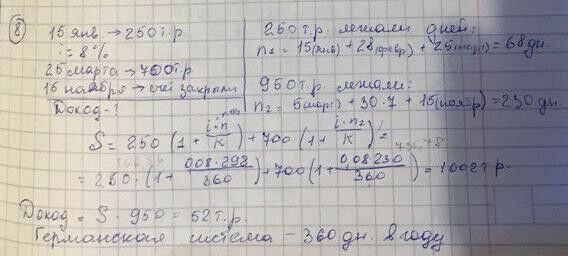 ⑧ 15 янв. → 250 т.р
i = 8 %
25 марта → 700 т.р
16 ноября → счет закрыли
Доход - ?
250 т.р. лежали дней:
n₁ = 15 (янв) + 28 (февр) + 25 (март) = 68 дн.
950 т.р. лежали:
n₂ = 5 (март) + 30·7 + 15 (ноябр) = 230 дн.
S = 250 (1 + i·n/K) + 700 (1 + i·n₂/K) =
= 250·(1 + 0,08·298/360) + 700 (1 + 0,08·230/360) = 1002 т р.
Доход = S - 950 = 52 т.р.
Германская система - 360 дн. в году